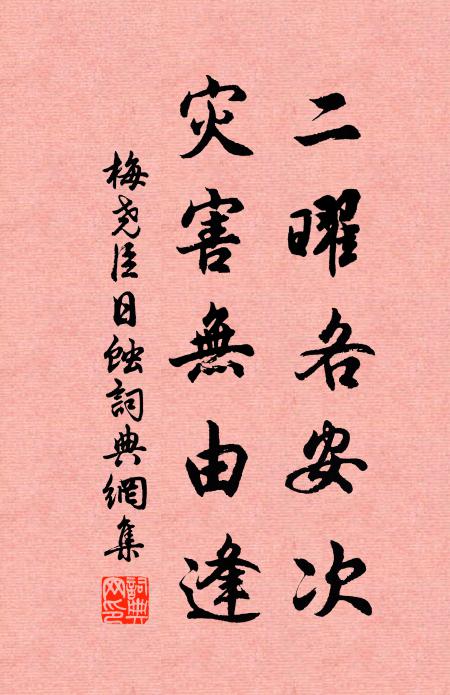 二曜各安次
灾害無由逢
梅尧臣日蝕詞典網集
詞典網印